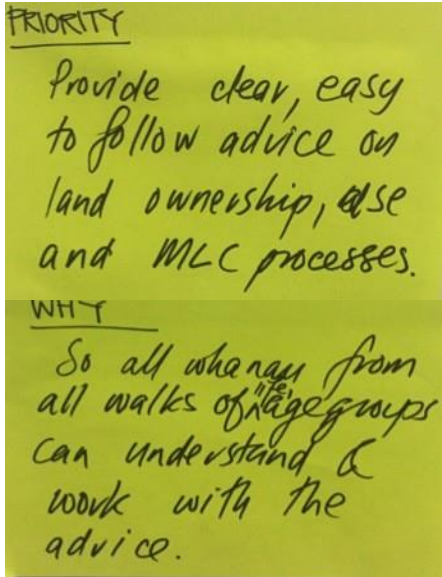 PRIORITY
Provide clear, easy
to follow advice on
land ownership, use
and MLC processes.
WHY
So all whanau from
all walks of life, age groups
can understand &
work with the
advice.